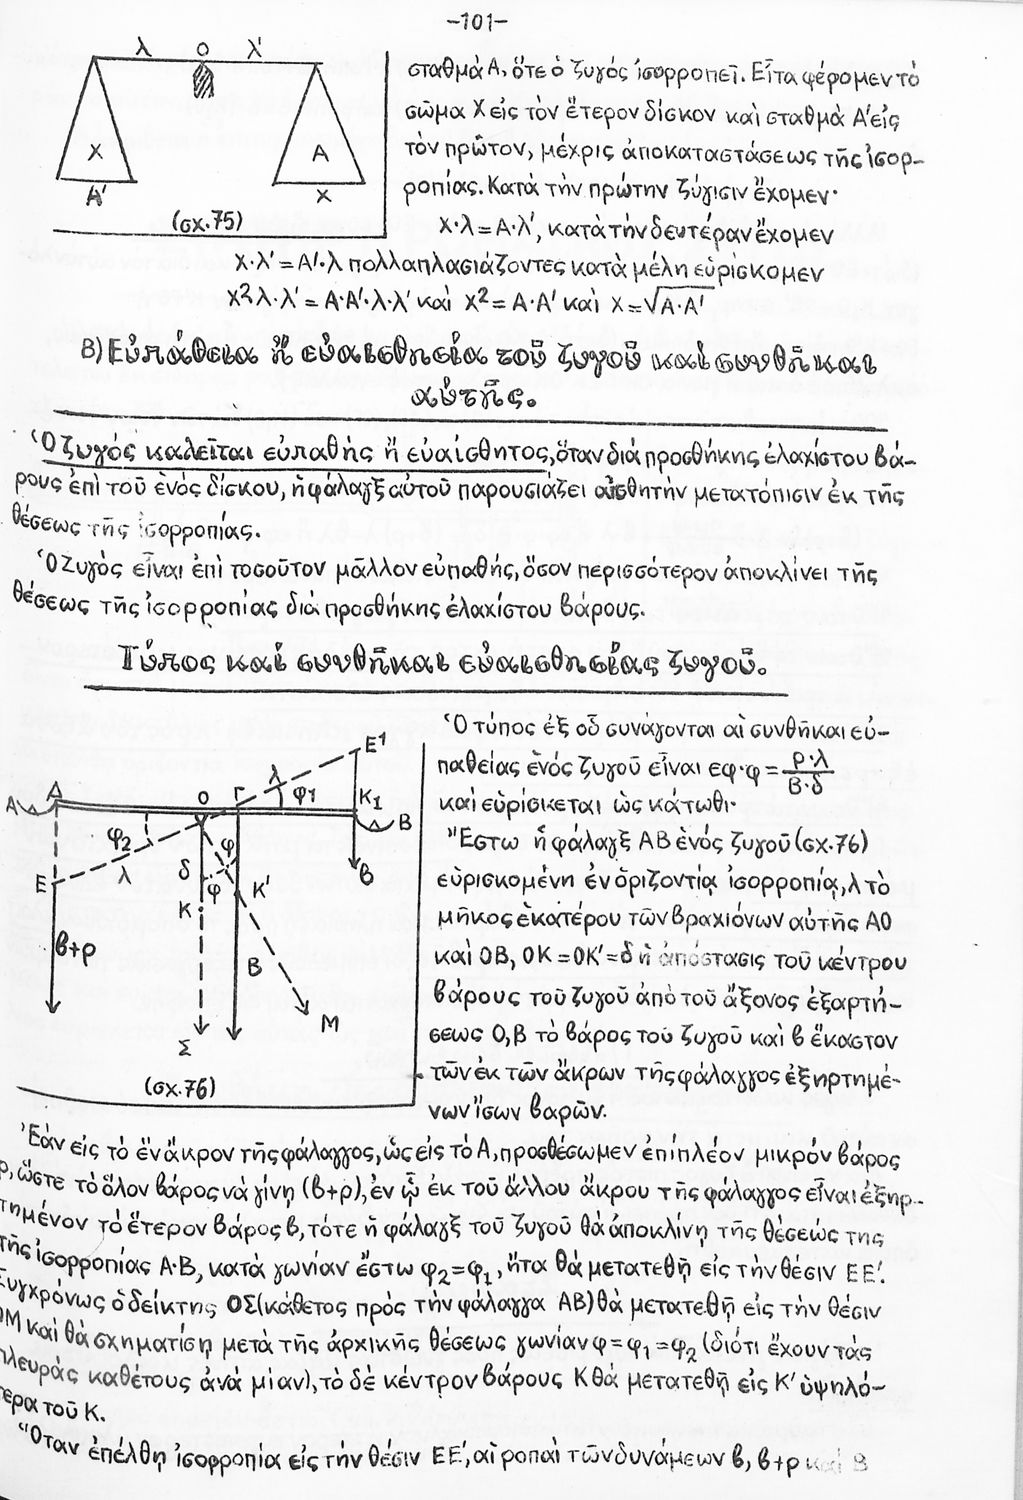 -101-
λ Ο λ'
Χ Α
Α' Χ
(σχ.75)
σταθμὰ Α, ὅτε ὁ ζυγός ἰσορροπεῖ. Εἶτα φέρομεν τὸ
σῶμα Χ εἰς τὸν ἕτερον δίσκον καὶ σταθμὰ Α' εἰς
τὸν πρῶτον, μέχρις ἀποκαταστάσεως τῆς ἰσορ-
ροπίας. Κατὰ τὴν πρώτην ζύγισιν ἔχομεν·
Χ·λ = Α·λ', κατὰ τὴν δευτέραν ἔχομεν
Χ·λ' = Α'·λ πολλαπλασιάζοντες κατὰ μέλη εὑρίσκομεν
Χ²λ·λ' = Α·Α'·λ·λ' καὶ Χ² = Α·Α' καὶ Χ = √Α·Α'
Β) Εὐπάθεια ἤ εὐαισθησία τοῦ ζυγοῦ καὶ συνθῆκαι
αὐτῆς.
Ὁ ζυγός καλεῖται εὐπαθής ἤ εὐαίσθητος, ὅταν διὰ προσθήκης ἐλαχίστου βά-
ρους ἐπὶ τοῦ ἑνός δίσκου, ἡ φάλαγξ αὐτοῦ παρουσιάζει αἰσθητήν μετατόπισιν ἐκ τῆς
θέσεως τῆς ἰσορροπίας.
Ὁ ζυγὸς εἶναι ἐπὶ τοσοῦτον μᾶλλον εὐπαθής, ὅσον περισσότερον ἀποκλίνει τῆς
θέσεως τῆς ἰσορροπίας διὰ προσθήκης ἐλαχίστου βάρους.
Τύπος καὶ συνθῆκαι εὐαισθησίας ζυγοῦ.
Ε' λ φ1 Κ1
Α Δ Ο Γ Β
φ2 λ δ φ φ Κ Κ' β
Ε β+ρ Β
Σ Μ
(σχ.76)
Ὁ τύπος ἐξ οὗ συνάγονται αἱ συνθῆκαι εὐ-
παθείας ἑνός ζυγοῦ εἶναι εφ·φ = ρ·λ/Β·δ
καὶ εὑρίσκεται ὡς κάτωθι·
Ἔστω ἡ φάλαγξ ΑΒ ἑνός ζυγοῦ (σχ.76)
εὑρισκομένη ἐν ὁριζοντίᾳ ἰσορροπίᾳ, λ τὸ
μῆκος ἑκατέρου τῶν βραχιόνων αὐτῆς ΑΟ
καὶ ΟΒ, ΟΚ = ΟΚ' = δ ἡ ἀπόστασις τοῦ κέντρου
βάρους τοῦ ζυγοῦ ἀπὸ τοῦ ἄξονος ἐξαρτή-
σεως Ο, Β τὸ βάρος τοῦ ζυγοῦ καὶ β ἕκαστον
τῶν ἐκ τῶν ἄκρων τῆς φάλαγγος ἐξηρτημέ-
νων ἴσων βαρῶν.
Ἐάν εἰς τὸ ἕν ἄκρον τῆς φάλαγγος, ὡς εἰς τὸ Α, προσθέσωμεν ἐπιπλέον μικρόν βάρος
ρ, ὥστε τὸ ὅλον βάρος νὰ γίνῃ (β+ρ), ἐν ᾧ ἐκ τοῦ ἄλλου ἄκρου τῆς φάλαγγος εἶναι ἐξηρ-
τημένον τὸ ἕτερον βάρος β, τότε ἡ φάλαγξ τοῦ ζυγοῦ θὰ ἀποκλίνῃ τῆς θέσεώς της
τῆς ἰσορροπίας Α·Β, κατὰ γωνίαν ἔστω φ2 = φ1, ἤτα θὰ μετατεθῇ εἰς τὴν θέσιν ΕΕ'.
Συγχρόνως ὁ δείκτης ΟΣ (κάθετος πρὸς τὴν φάλαγγα ΑΒ) θὰ μετατεθῇ εἰς τὴν θέσιν
ΟΜ καὶ θὰ σχηματίσῃ μετὰ τῆς ἀρχικῆς θέσεως γωνίαν φ = φ1 = φ2 (διότι ἔχουν τάς
πλευράς καθέτους ἀνά μίαν), τὸ δέ κέντρον βάρους Κ θὰ μετατεθῇ εἰς Κ' ὑψηλό-
τερα τοῦ Κ.
Ὅταν ἐπέλθῃ ἰσορροπία εἰς τὴν θέσιν ΕΕ', αἱ ροπαὶ τῶν δυνάμεων β, β+ρ καὶ Β